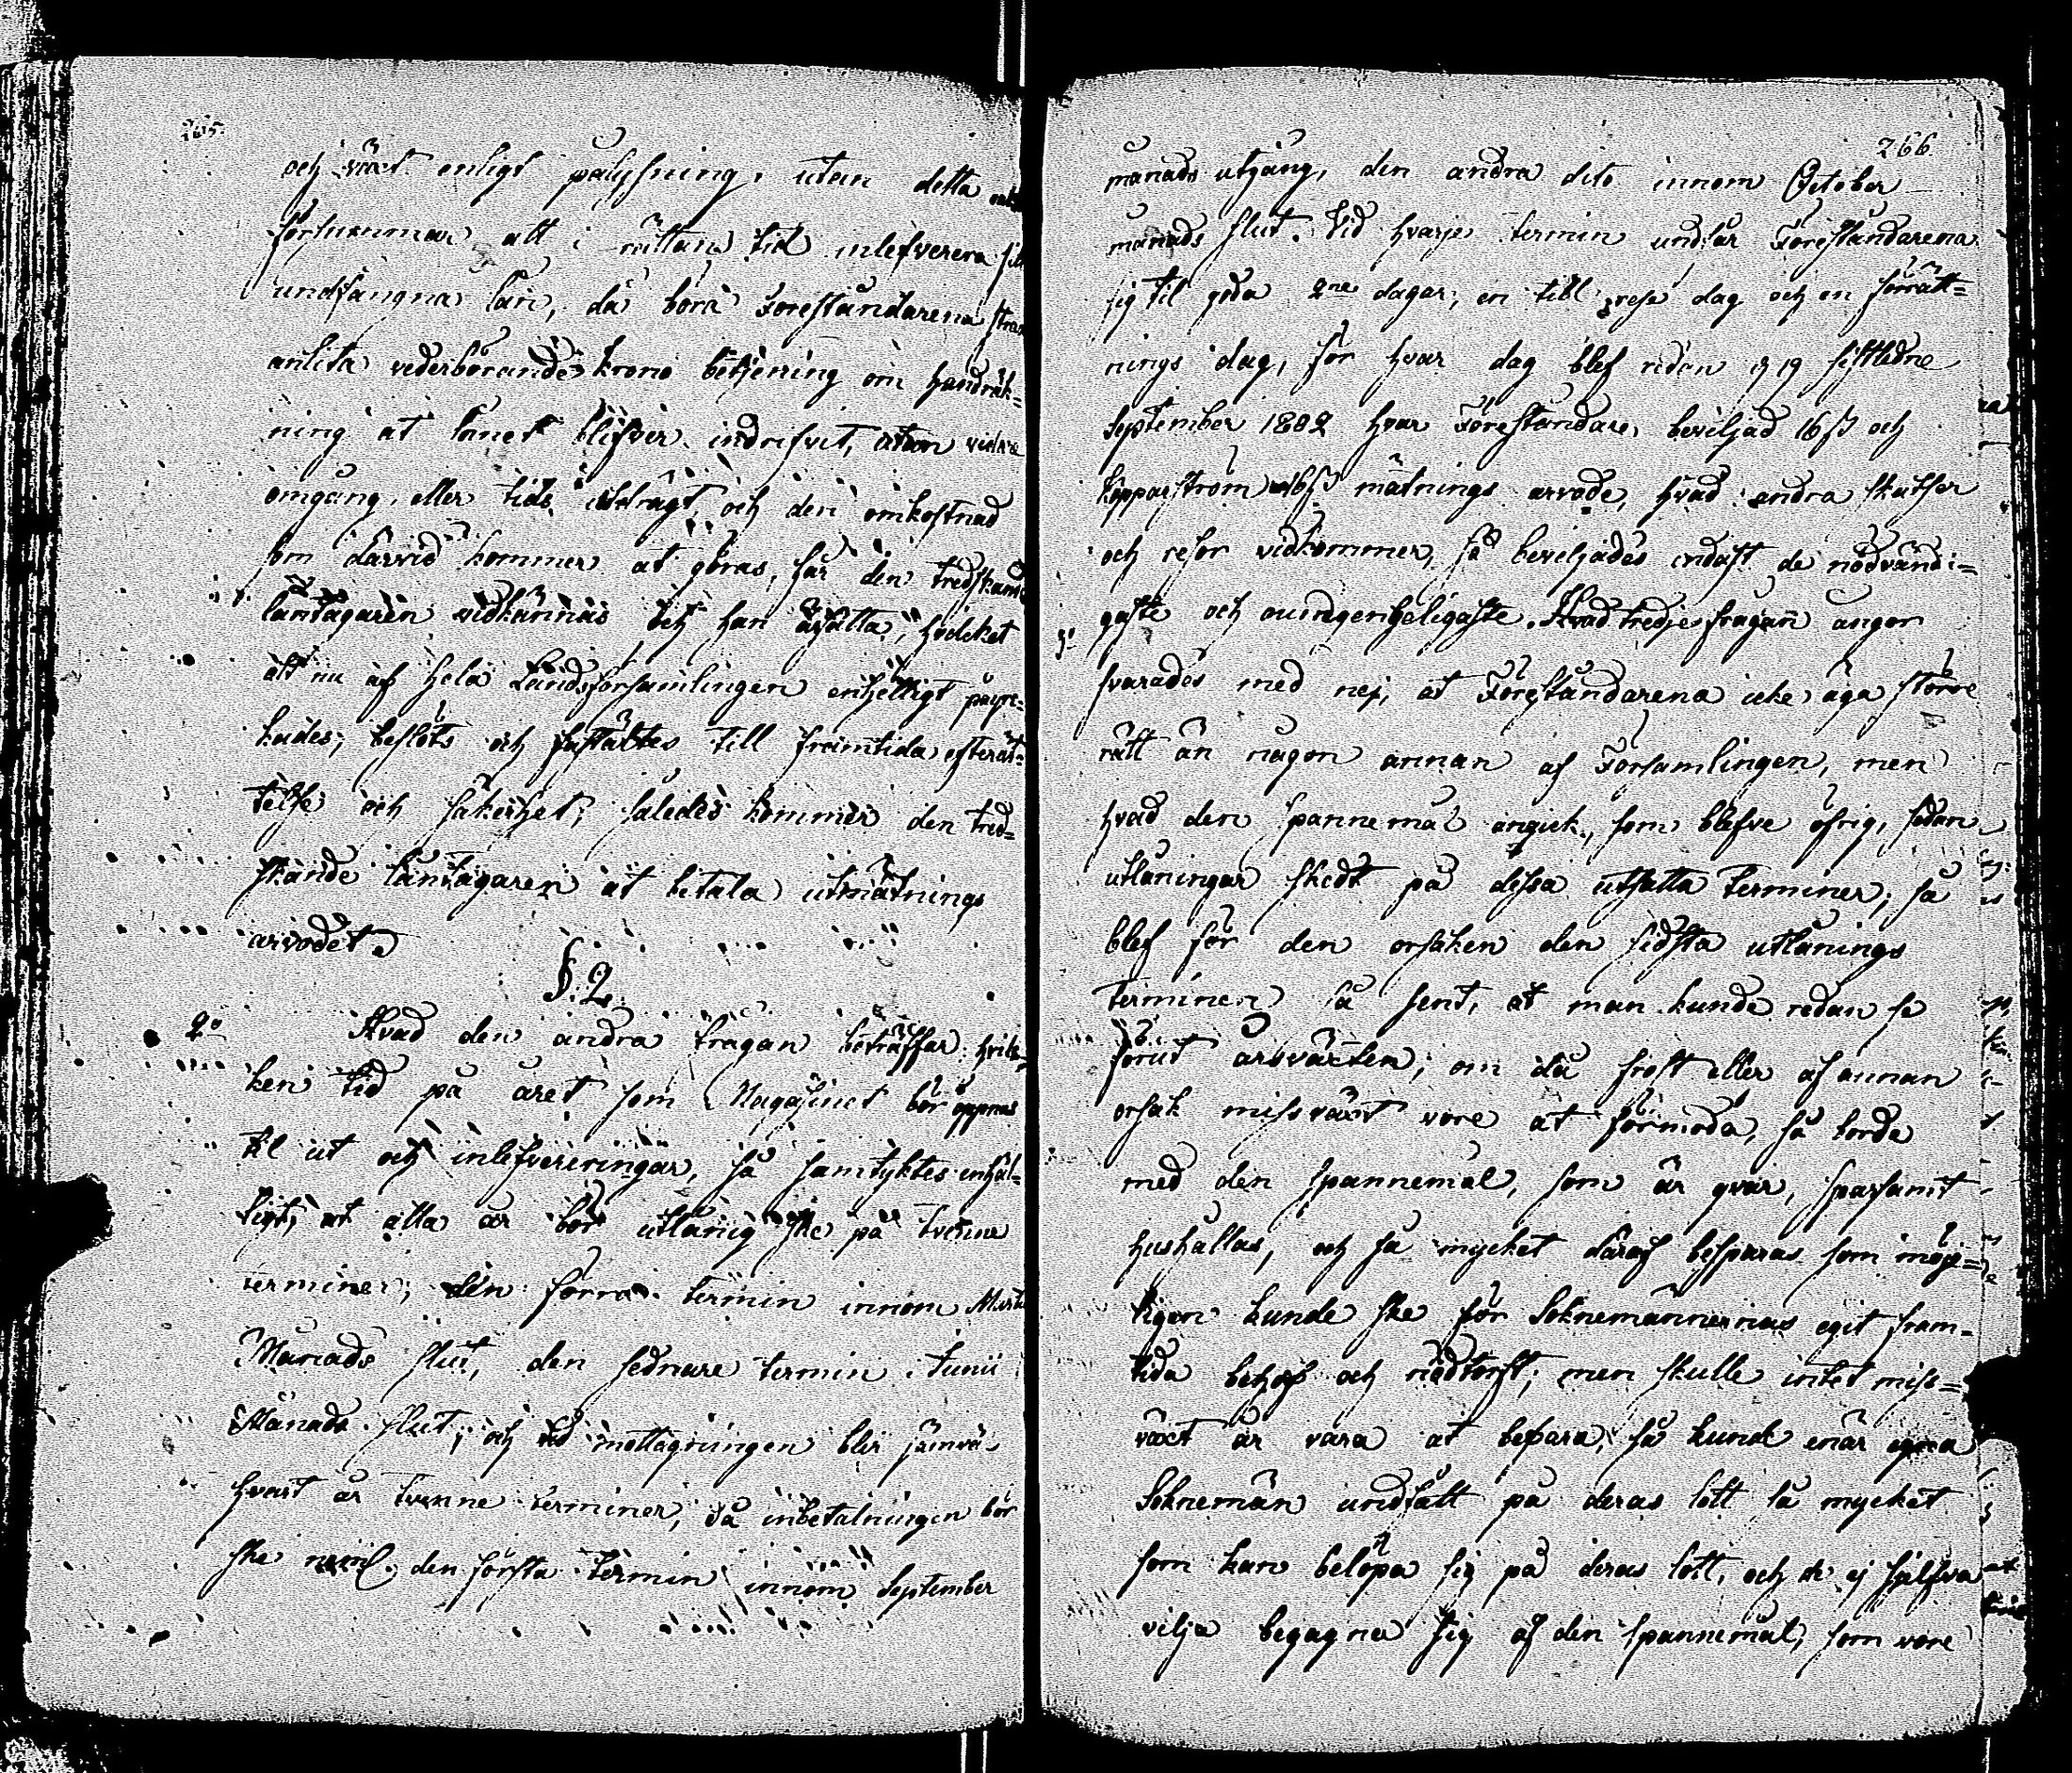 265.
och växt enligt pålysning, utan detta
försummar att i rättan tid inlefverera sitt
undfångna lån, då böra Föreståndarena strax
anlita vederbörande krono betjening om handräk=
ning at lånet blifver indrifvit, utan vidare
omgång eller tids utdrägt, och den omkostnad
som därvid kommer at göras, får den tredskande
låntagaren vidkännas och han ärsätta, hvilcket
alt nu af hela Landsförsamlingen enhelligt påyr=
kades, beslöts och faställtes till framtida efterät=
telse och säkerhet; således kommer den tred=
skande låntagaren at betala utmätnings
arvodet.
§. 2.
2o Hvad den andra frågan beträffar: hvilc=
ken tid på året som Magasinet bör öppnas
til ut och inlefvereringar, så samtyktes enhäl=
ligt, at alla år bör utlånig ske på tvenne
terminer; den förra termin innom Martii
Månads slut, den sednare termin i Junii
Månads slut; och vid mottagningen blir jämväl
hvart år tvenne terminer, då inbetalningen bör
ske neml. den första termin innom September
266.
månads utgång, den andra dito innom October
månads slut. Vid hvarje termin undfår Föreståndarena
sig til goda 2ne dagar, en till rese dag och en förrätt=
nings dag, för hvar dag blef redan d 19 sistledne
September 1802 hvar Föreståndare beviljad 16 ß och
Kopparström 16 ß mätnings arvode, hvad andra skutser
och resor vidkommer, så beviljades endast de nödvändi=
gaste och oumgengeligaste. Hvad tredje frågan angor
3o
svarades med nej, at Föreståndarena icke äga större
rätt än någon annan af Församlingen, men
hvad den spannemål angick, som blefve öfrig, sedan
utlåningar skedt på dessa utsatta terminer, så
blef för den orsaken den sidsta utlånings
terminen så sent, at man kunde redan se
förut årsväxten; om då frost eller af annan
orsak missväxt vore at förmoda, så borde
med den spannemål, som är qvar, sparsamt
hushållas, och så mycket däraf besparas som möj=
ligen kunde ske för Soknemännernas eget fram=
tida behof och nödtorft; men skulle intet miss=
växt år vara at befara, så kunde enär egna
Soknemän undfått på deras lott så mycket
som kan belöpa sig på deras lott, och de ej sjelfva
vilja begagna sig af den spannemål, som vore